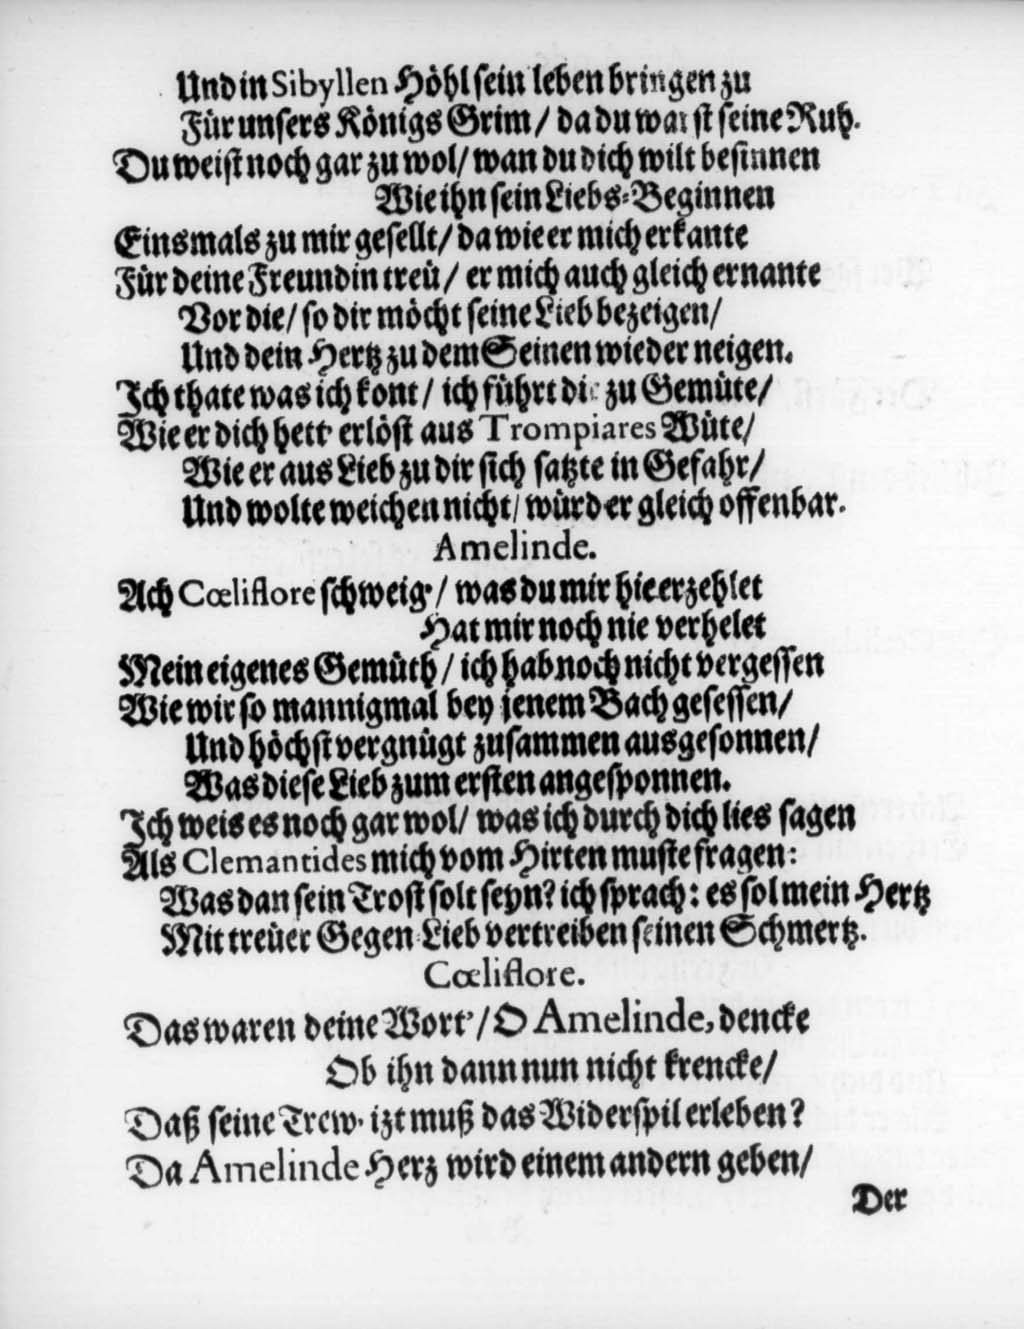 Und in Sibyllen Höhl sein leben bringen zu
Für unsers Königs Grim / da du warst seine Ruh.
Du weist noch gar zu wol / wan du dich wilt besinnen
Wie ihn sein Liebs-Beginnen
Einsmals zu mir gesellt / da wie er mich erkante
Für deine Freundin treü / er mich auch gleich ernante
Vor die / so dir möcht seine Lieb bezeigen /
Und dein Hertz zu dem Seinen wieder neigen.
Ich thate was ich kont / ich führt die zu Gemüte /
Wie er dich hett' erlöst aus Trompiares Wüte /
Wie er aus Lieb zu dir sich satzte in Gefahr /
Und wolte weichen nicht / würd er gleich offenbar.
Amelinde.
Ach Cœliflore schweig' / was du mir hie erzehlet
Hat mir noch nie verhelet
Mein eigenes Gemüth / ich hab noch nicht vergessen
Wie wir so mannigmal bey jenem Bach gesessen /
Und höchst vergnügt zusammen ausgesonnen /
Was diese Lieb zum ersten angesponnen.
Ich weis es noch gar wol / was ich durch dich lies sagen
Als Clemantides mich vom Hirten muste fragen:
Was dan sein Trost solt seyn? ich sprach: es sol mein Hertz
Mit treüer Gegen-Lieb vertreiben seinen Schmertz.
Cœliflore.
Das waren deine Wort' / O Amelinde, dencke
Ob ihn dann nun nicht krencke /
Daß seine Trew' izt muß das Widerspil erleben?
Da Amelinde Herz wird einem andern geben /
Der